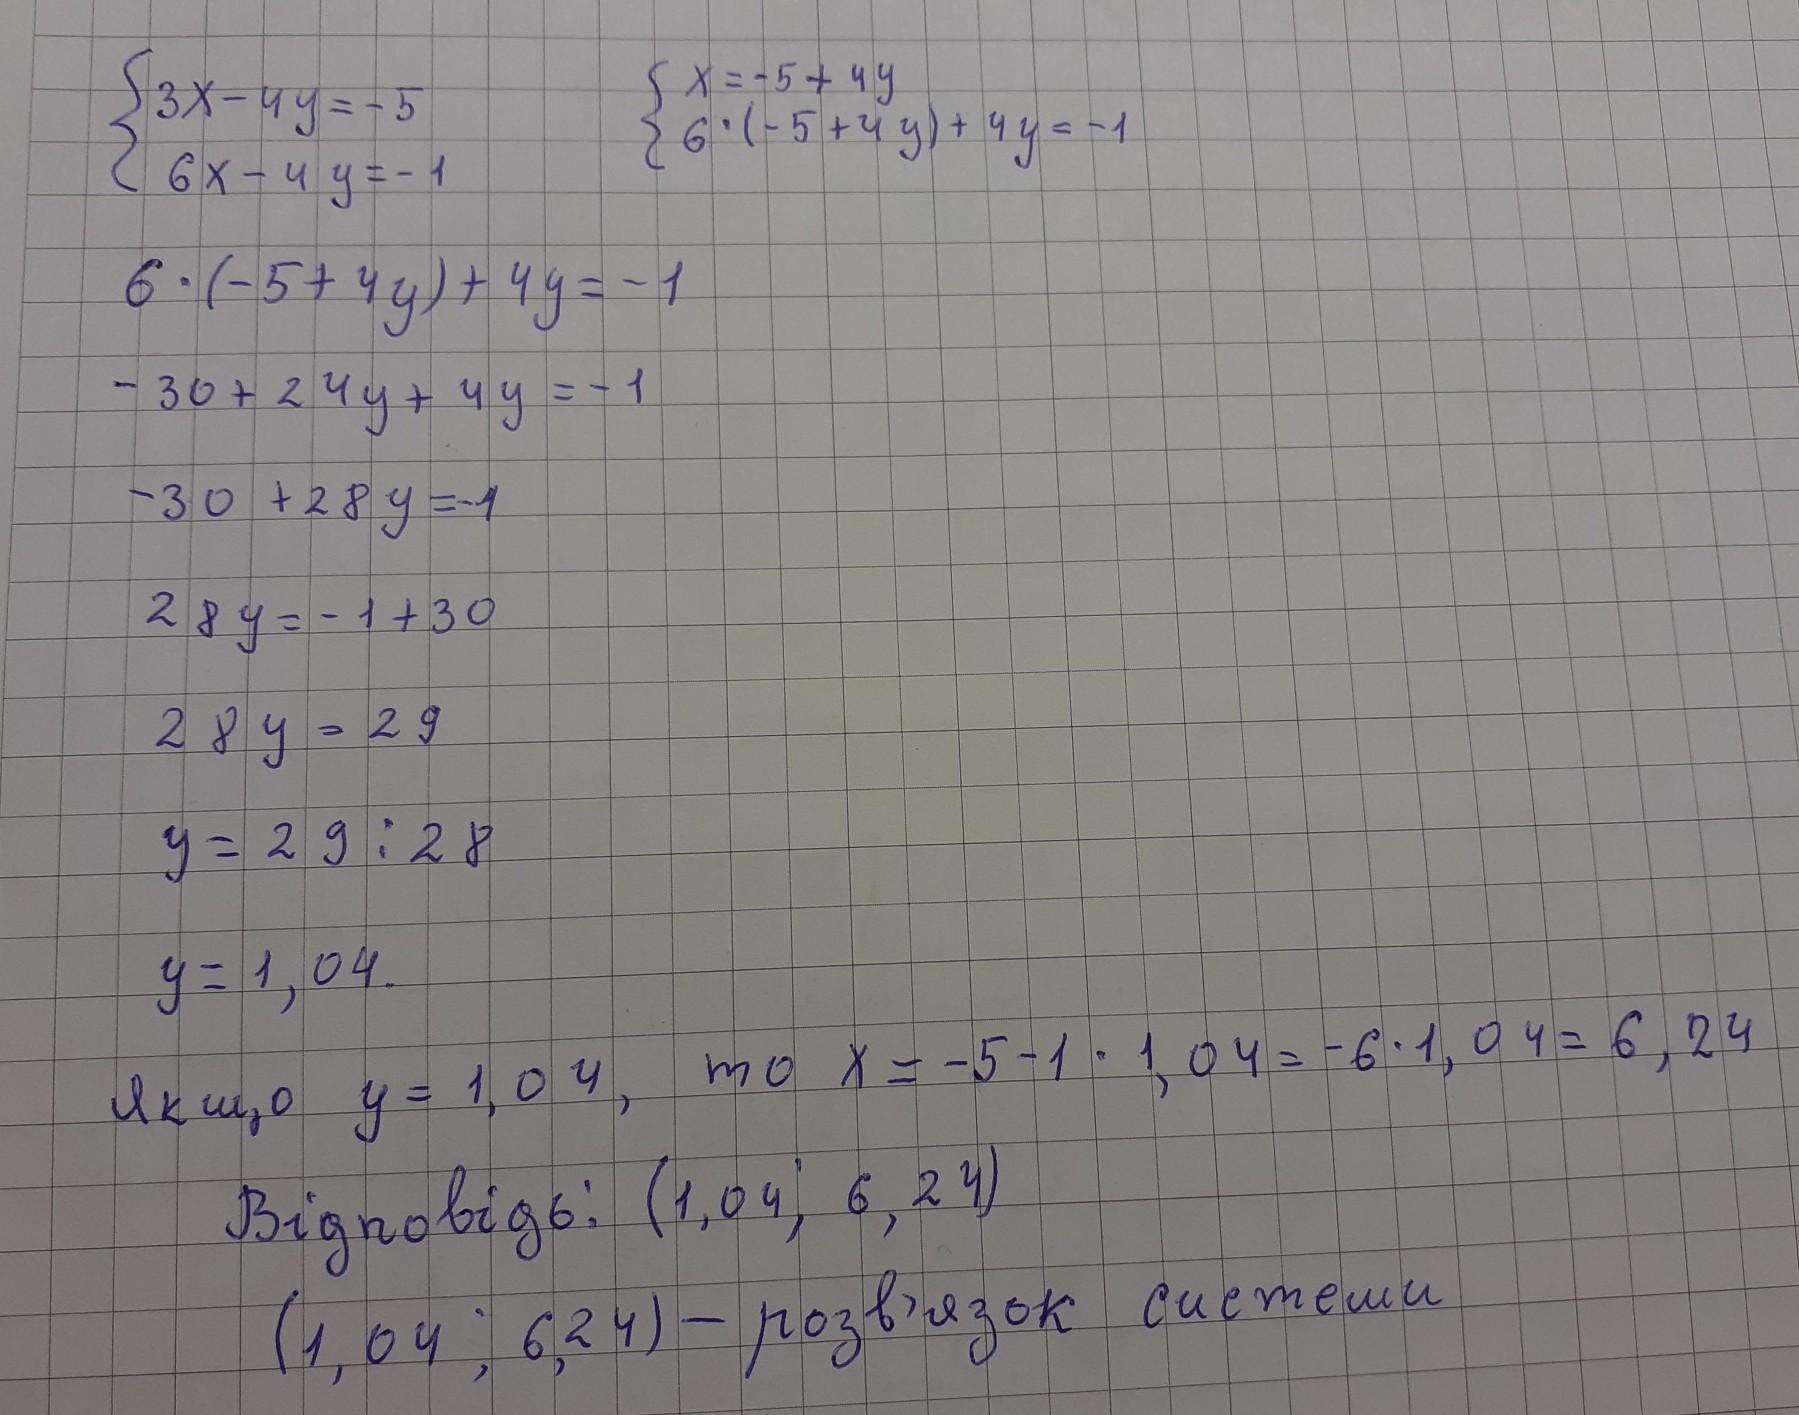 3x-4y=-5
6x-4y=-1
x=-5+4y
6·(-5+4y)+4y=-1
6·(-5+4y)+4y=-1
-30+24y+4y=-1
-30+28y=-1
28y=-1+30
28y=29
y=29:28
y=1,04.
Якщо y=1,04, то x=-5-1·1,04=-6·1,04=6,24
Відповідь: (1,04; 6,24)
(1,04; 6,24) – розв'язок системи